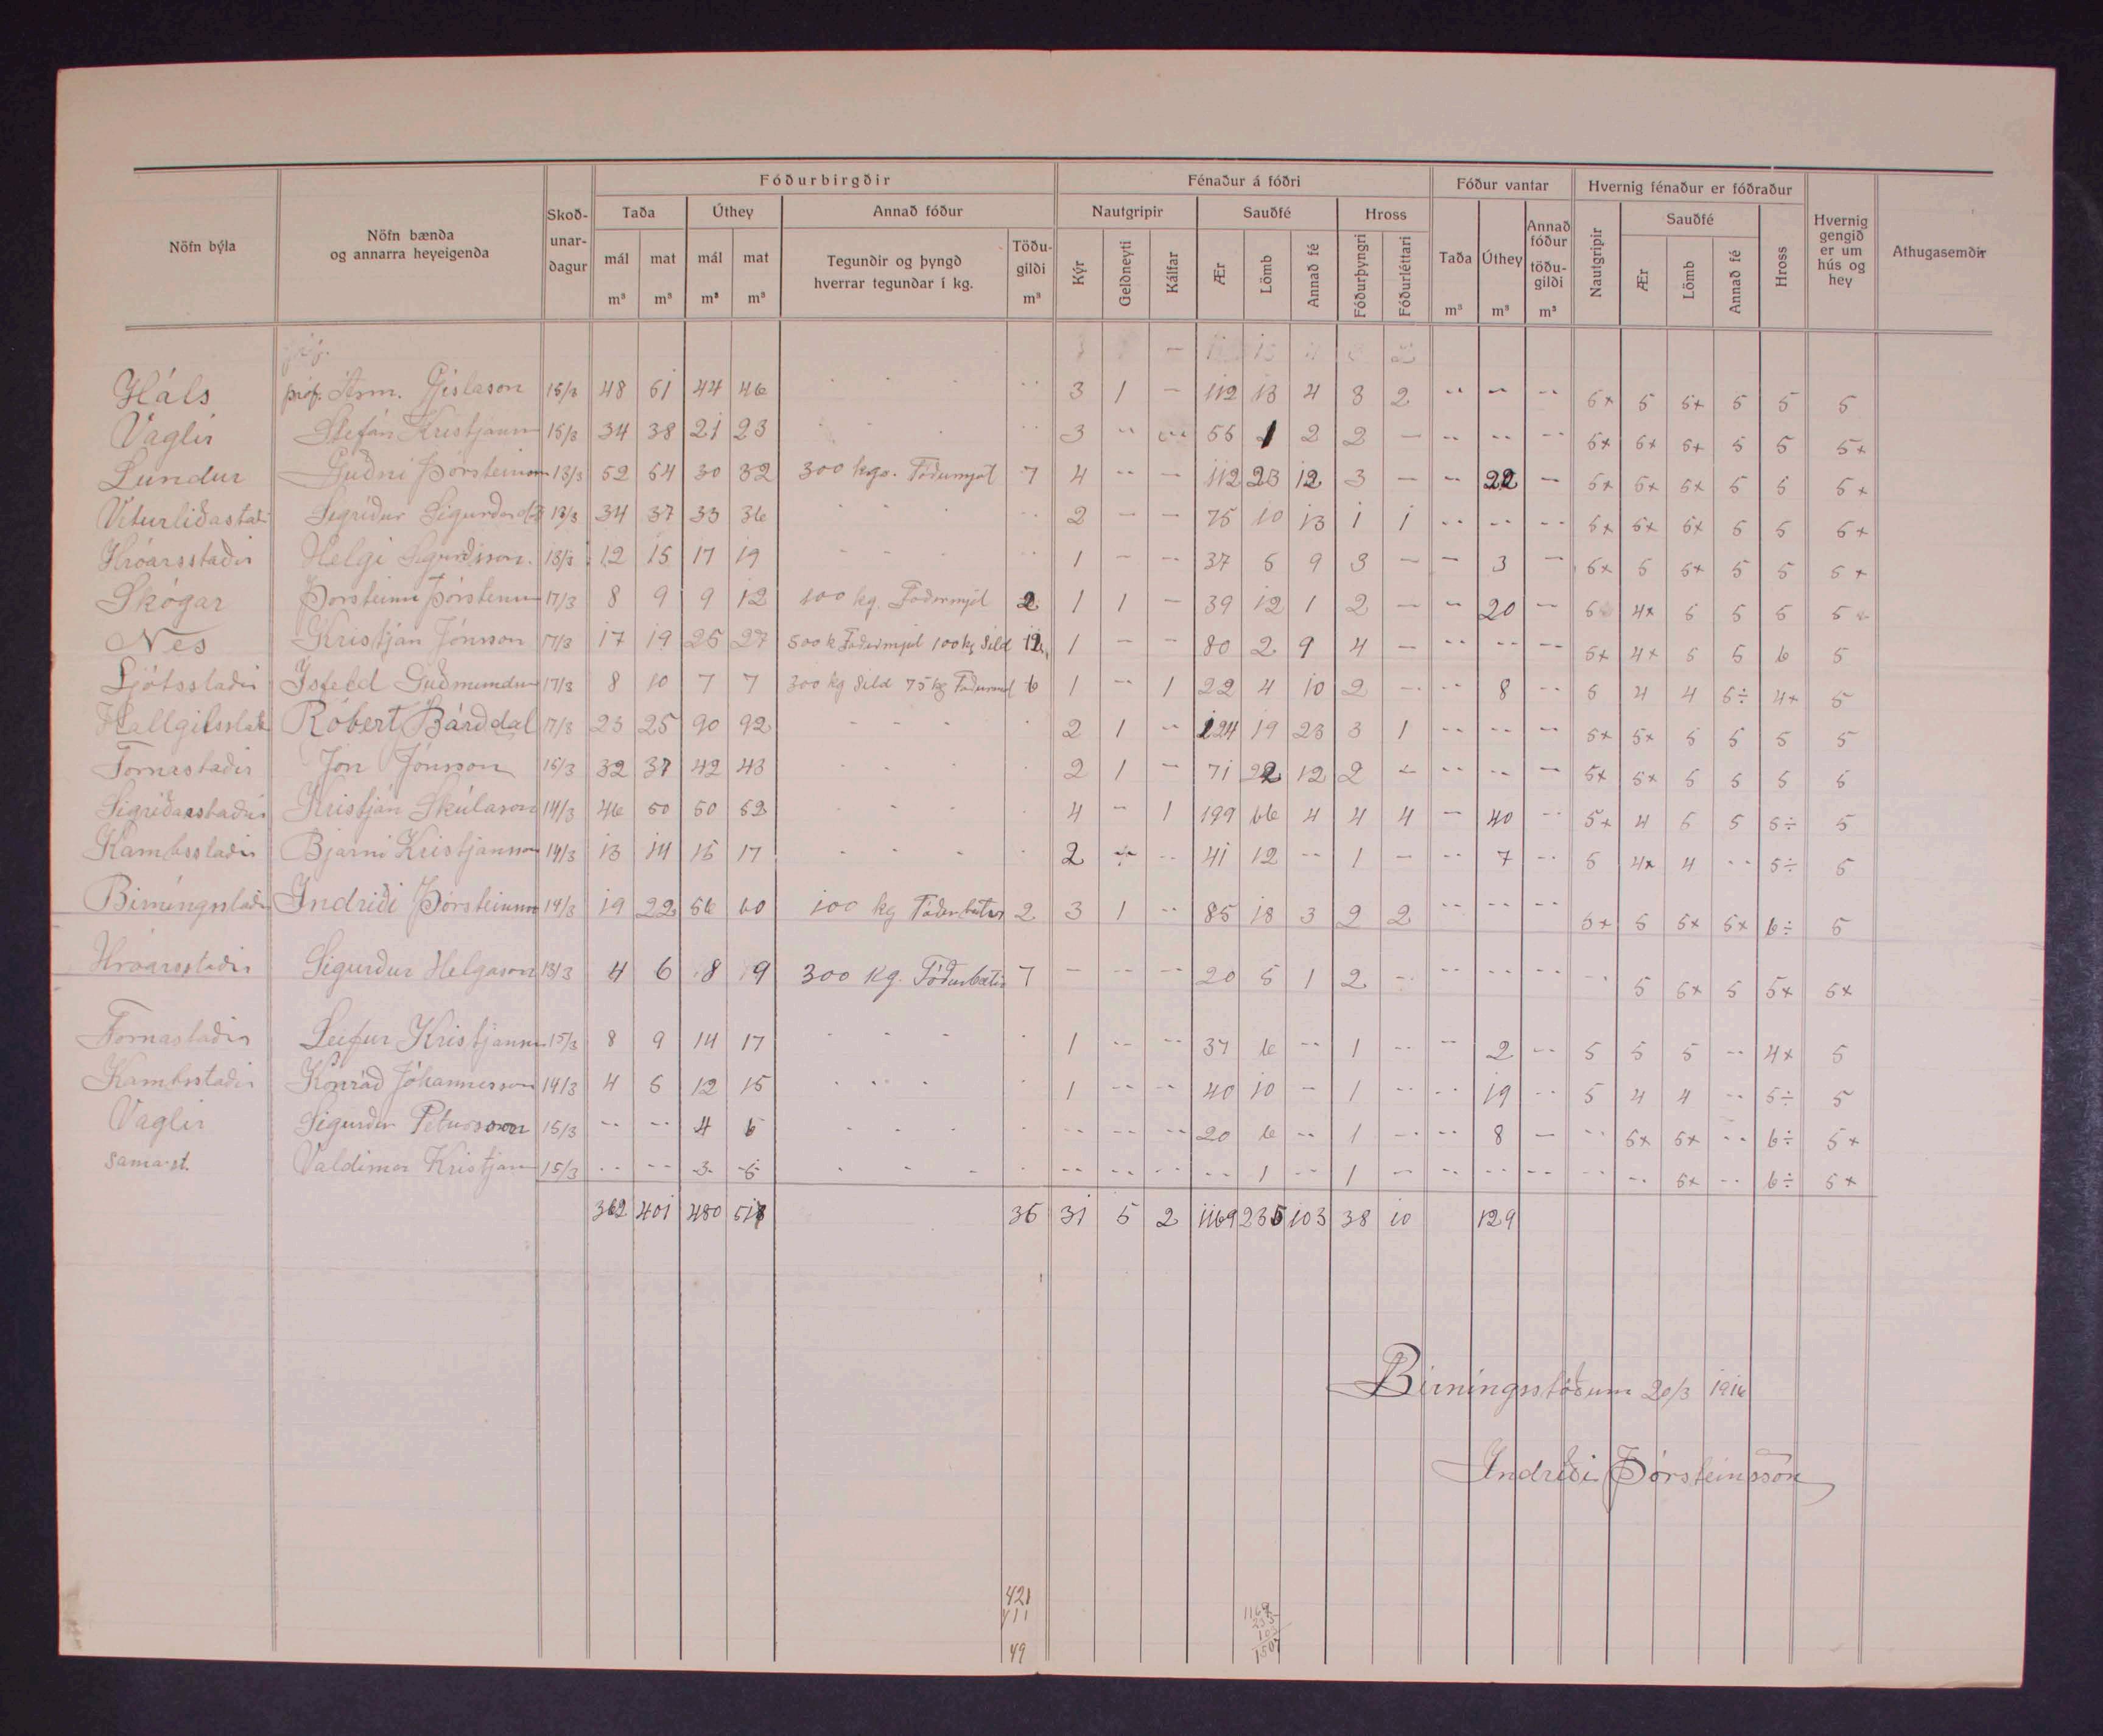 Fóðurbirgðir Fénaður á fóðri Fóður vantar Hvernig fénaður er fóðraður
Nöfn býla Nöfn bænda og annarra heyeigenda Skoðunardagur Taða Úthey Annað fóður Nautgripir Sauðfé Hross Taða Úthey Annað fóður töðugildi Nautgripir Sauðfé Hross Hvernig gengið er um hús og hey Athugasemdir
mál mat mál mat Tegundir og þyngd hverrar tegundar í kg. Töðugildi Kýr Geldneyti Kálfar Ær Lömb Annað fé Fóðurþyngri Fóðurléttari Ær Lömb Annað fé
m³ m³ m³ m³ m³ m³ m³ m³
Háls próf. Ásm. Gíslason 15/3 48 51 44 46 - - - - 3 1 - 112 13 4 8 2 - - - 5+ 5 5+ 5 5 5
Vaglir Stefán Kristjánn 15/3 34 38 21 23 - - - - 3 - - 55 1 2 2 - - - - 5+ 5+ 5+ 5 5 5+
Lundur Guðni Þórsteinsson 13/3 52 54 30 32 300 kgr. Fóðurmjöl 7 4 - - 112 23 12 3 - - 22 - 5+ 5+ 5+ 5 5 5+
Veturliðastaði Sigríður Sigurðard 13/3 34 37 33 36 - - - - 2 - - 75 10 13 1 1 - - - 5+ 5+ 5+ 5 5 5+
Hróarsstaðir Helgi Sigurðsson. 13/3 12 15 17 19 - - - - 1 - - 37 5 9 3 - - 3 - 5+ 5 5+ 5 5 5+
Skógar Þorsteinn Þórsteinn 17/3 8 9 9 12 100 kg. Foðermjöl 2 1 1 - 39 12 1 2 - - 20 - 5 4+ 5 5 5 5
Nes Kristján Jónsson 17/3 17 19 25 27 500 k Foðurmjöl 100 kg Síld 12 1 - - 80 2 9 4 - - - - 5+ 4+ 5 5 6 5
Ljótsstaðir Ísfeld Guðmundur 17/3 8 10 7 7 300 kg Síld 75 kg Foðurmél 6 1 - 1 22 4 10 2 - - 8 - 5 4 4 5÷ 4+ 5
Hallgilsstað Róbert Bárðdal 17/3 23 25 90 92 - - - - 2 1 - 124 19 23 3 1 - - - 5+ 5+ 5 5 5 5
Fornastaðir Jón Jónsson 15/3 32 37 42 43 - - - - 2 1 - 71 22 12 2 - - - - 5+ 5+ 5 5 5 5
Sigríðarstaðir Kristján Skúlason 14/3 46 50 50 52 - - - - 4 - 1 199 66 4 4 4 - 40 - 5+ 4 5 5 5÷ 5
Kambsstaðir Bjarni Kristjánsson 14/3 13 14 15 17 - - - - 2 - - 41 12 - 1 - - 7 - 5 4+ 4 - 5÷ 5
Birningsstaðir Indriði Þórsteinnsson 14/3 19 22 56 60 100 kg Fóðurbætir 2 3 1 - 85 18 3 2 2 - - - 5+ 5 5+ 5+ 6÷ 5
Hróarsstaðir Sigurður Helgason 13/3 4 6 8 9 300 kg. Fóðurbætir 7 - - - 20 5 1 2 - - - - - 5 5+ 5 5+ 5+
Fornastaðir Leifur Kristjánn 15/3 8 9 14 17 - - - - 1 - - 37 6 - 1 - - 2 - 5 5 5 - 4+ 5
Kambsstaðir Konráð Jóhannesson 14/3 4 5 12 15 - - - - 1 - - 40 10 - 1 - - 19 - 5 4 4 - 5÷ 5
Vaglir Sigurður Pétursson 15/3 - - 4 5 - - - - - - - 20 6 - 1 - - 8 - - 5+ 5+ - 6÷ 5+
sama st. Valdimar Kristján 15/3 - - 3 5 - - - - - - - - 1 - 1 - - - - - - 5+ - 6÷ 5+
362 401 480 518 36 31 5 2 1169 235 103 38 10 129
Birningsstöðum 20/3 1916
Indriði Þórsteinsson
421
111
49
1169
235
103
1507